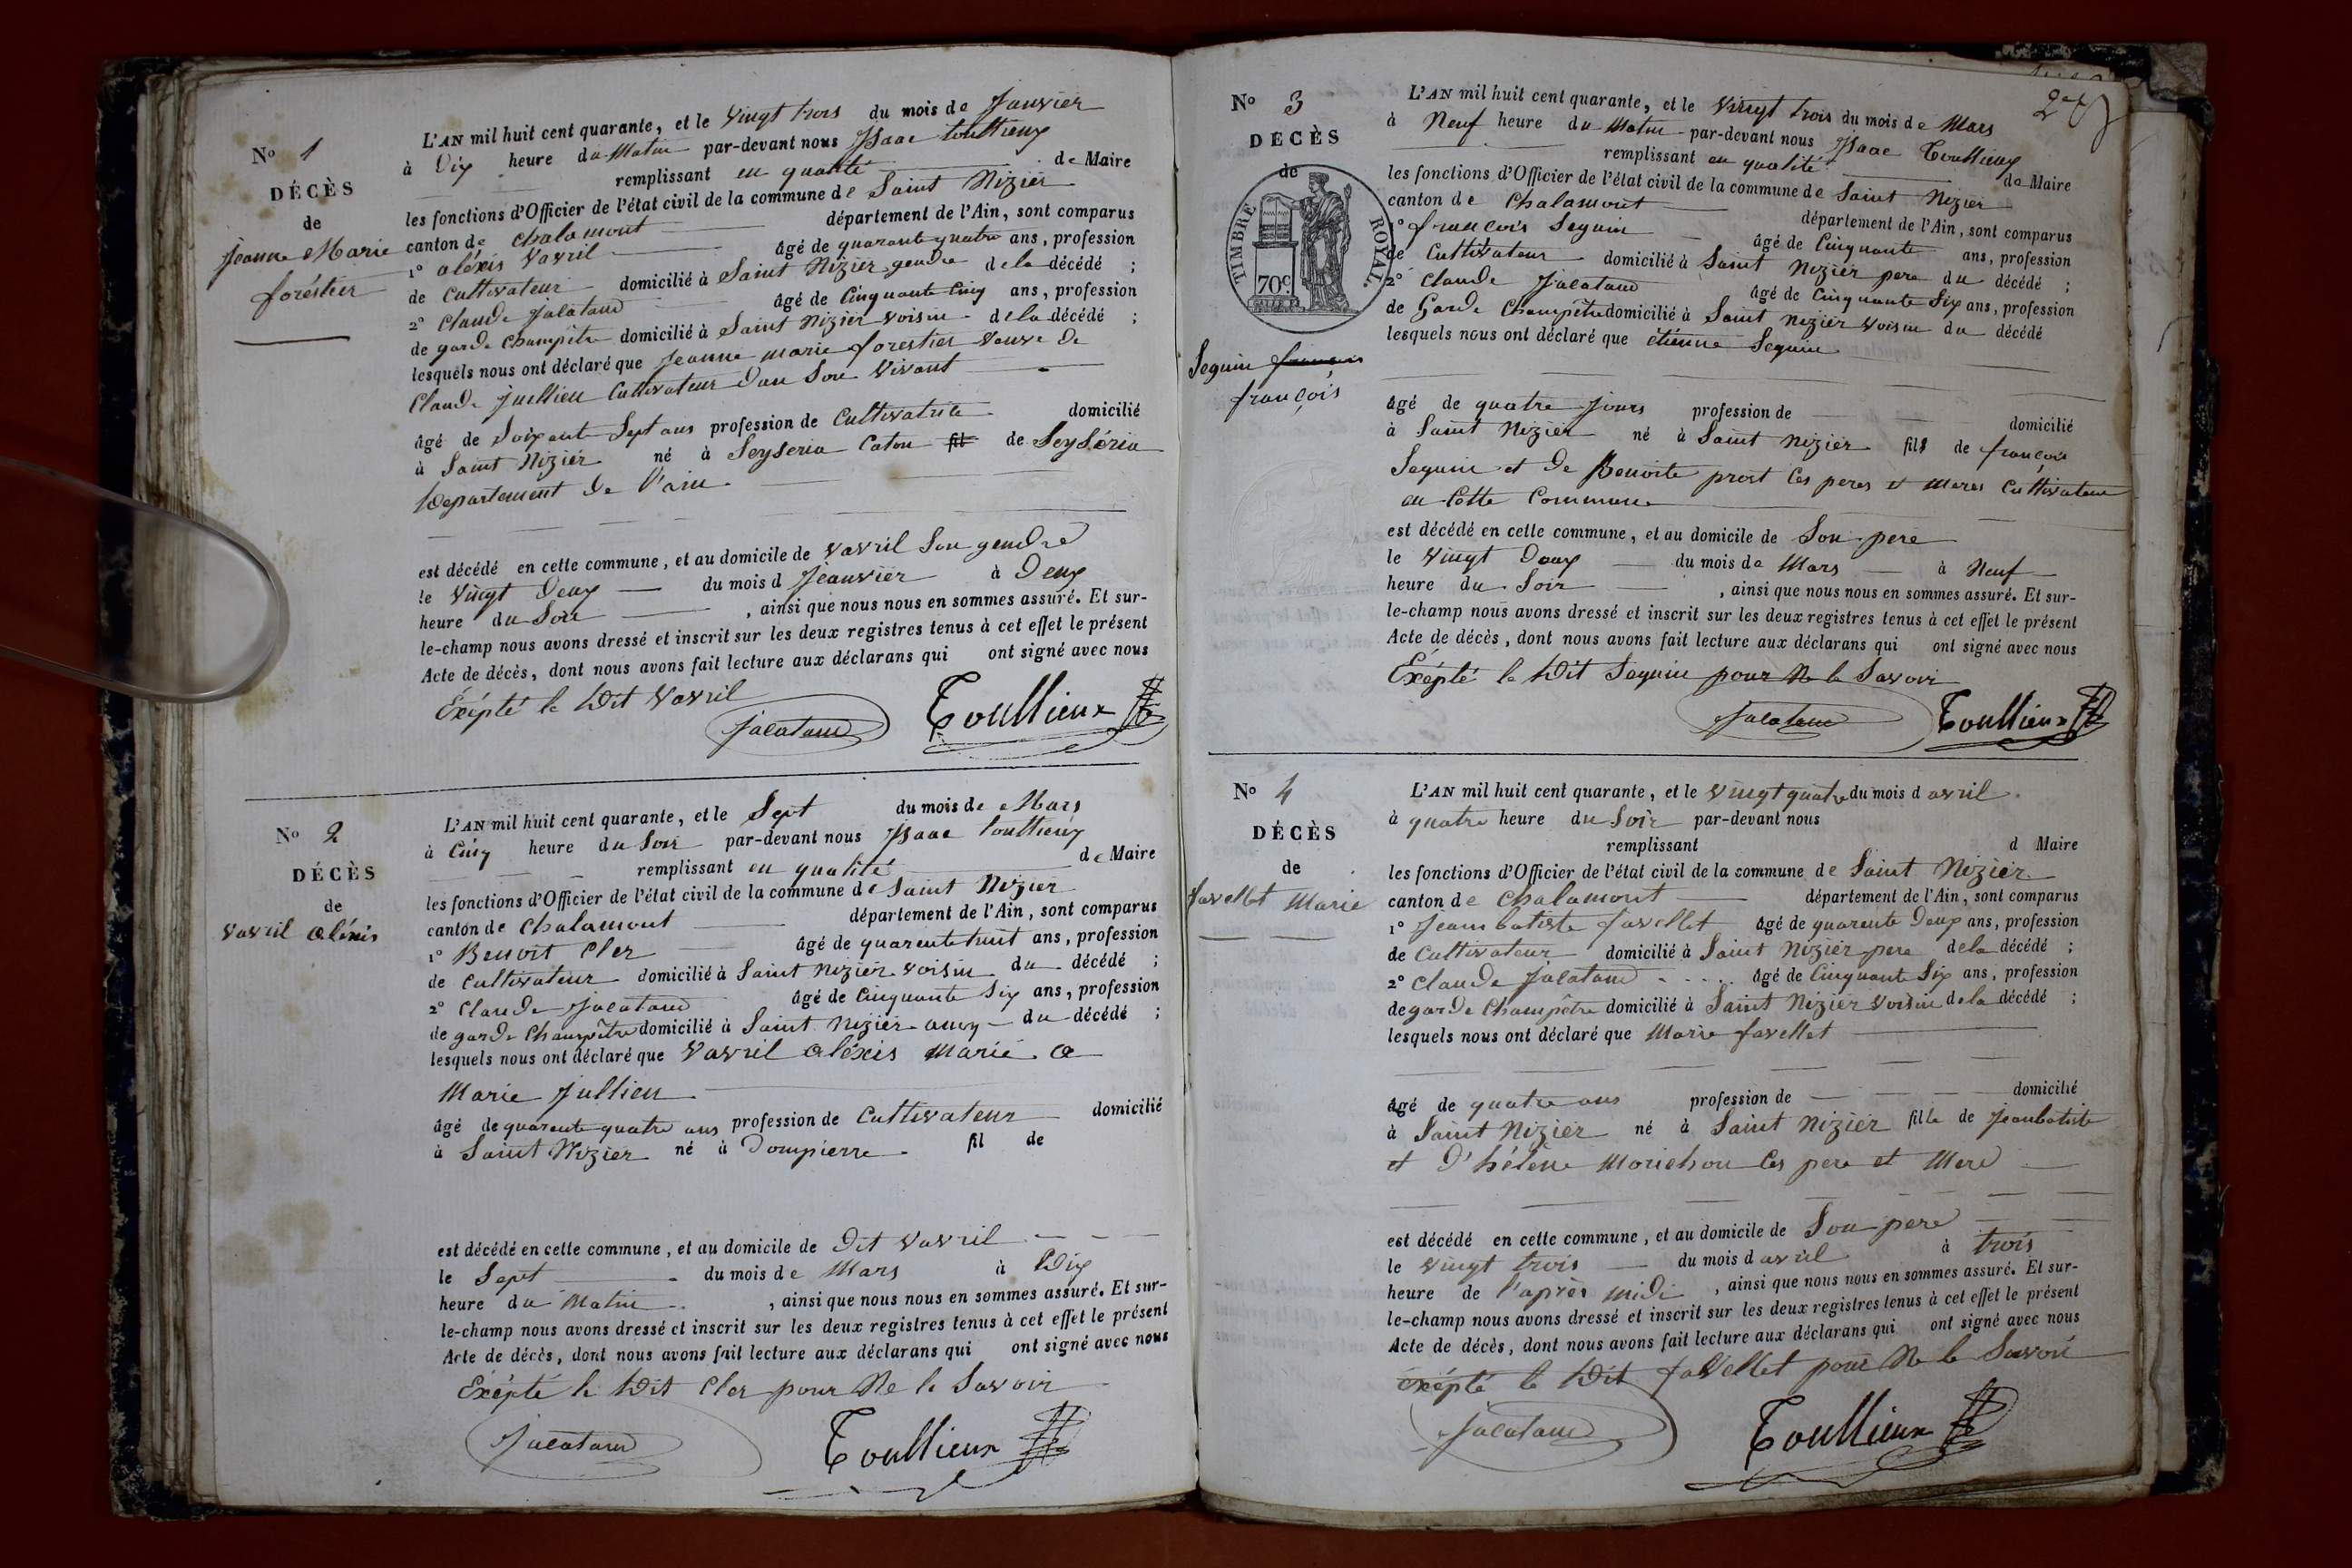 N° 1
DÉCÈS
de
Jeanne Marie
foréstier
L'AN mil huit cent quarante, et le Vingt trois du mois de Janvier
à Dix heure du Matin par-devant nous Isaac Toullieux
remplissant en qualité de Maire
les fonctions d'Officier de l'état civil de la commune de Saint Nizier
canton de Chalamont département de l'Ain, sont comparus
1° aléxis Vavril âgé de quarante quatre ans, profession
de Cultivateur domicilié à Saint Nizier gendre de la décédé ;
2° Claude Jalataud âgé de Cinquante Cinq ans, profession
de garde Champêtre domicilié à Saint Nizier Voisin de la décédé ;
lesquels nous ont déclaré que Jeanne marie forestier Veuve de
Claude Jullien Cultivateur Dan Son Vivant
âgé de Soixante Sept ans profession de Cultivatrice domicilié
à Saint Nizier né à Seyseria Caton fil de Seyséria
Departement De l'ain
est décédé en cette commune, et au domicile de Vavril Son gendre
le Vingt Deux du mois d Jeanvier à Deux
heure du Soir , ainsi que nous nous en sommes assuré. Et sur-
le-champ nous avons dressé et inscrit sur les deux registres tenus à cet effet le présent
Acte de décès, dont nous avons fait lecture aux déclarans qui ont signé avec nous
Éxépté le Dit Vavril
Jalataud Toullieux
N° 2
DÉCÈS
de
Vavril Aléxis
L'AN mil huit cent quarante, et le Sept du mois de Mars
à Cinq heure du Soir par-devant nous Isaac Toullieux
remplissant en qualité de Maire
les fonctions d'Officier de l'état civil de la commune de Saint Nizier
canton de Chalamont département de l'Ain, sont comparus
1° Benoit Cler âgé de quarente huit ans, profession
de Cultivateur domicilié à Saint Nizier Voisin du décédé ;
2° Claude Jalataud âgé de Cinquante Six ans, profession
de garde Champêtre domicilié à Saint Nizier amy du décédé ;
lesquels nous ont déclaré que Vavril Aléxis Marié a
Marie Jullien
âgé de quarente quatre ans profession de Cultivateur domicilié
à Saint Nizier né à Dompierre fil de
est décédé en cette commune, et au domicile de Dit Vavril
le Sept du mois de Mars à Dix
heure du Matin , ainsi que nous nous en sommes assuré. Et sur-
le-champ nous avons dressé et inscrit sur les deux registres tenus à cet effet le présent
Acte de décès, dont nous avons fait lecture aux déclarans qui ont signé avec nous
Éxépté le Dit Cler pour Ne le Savoir
Jalataud Toullieux
N° 3
DÉCÈS
de
TIMBRE ROYAL
70c.
Seguin françois
françois
L'AN mil huit cent quarante, et le Vingt trois du mois de Mars
à Neuf heure du Matin par-devant nous Isaac Toullieux
remplissant en qualité de Maire
les fonctions d'Officier de l'état civil de la commune de Saint Nizier
canton de Chalamont département de l'Ain, sont comparus
1° françois Seguin âgé de Cinquante ans, profession
de Cultivateur domicilié à Saint Nizier pere du décédé ;
2° Claude Jalataud âgé de Cinquante Six ans, profession
de Garde Champêtre domicilié à Saint Nizier Voisin du décédé
lesquels nous ont déclaré que étienne Seguin
âgé de quatre jours profession de domicilié
à Saint Nizier né à Saint Nizier fils de françois
Seguin et De Benoite prost Ces peres et meres Cultivateur
en Cette Commune
est décédé en cette commune, et au domicile de Son pere
le Vingt Deux du mois de Mars à Neuf
heure du Soir , ainsi que nous nous en sommes assuré. Et sur-
le-champ nous avons dressé et inscrit sur les deux registres tenus à cet effet le présent
Acte de décès, dont nous avons fait lecture aux déclarans qui ont signé avec nous
Éxépté le Dit Seguin pour Ne le Savoir
Jalataud Toullieux
N° 4
DÉCÈS
de
favellet Marie
L'AN mil huit cent quarante, et le Vingt quatre du mois d avril
à quatre heure du Soir par-devant nous
remplissant d Maire
les fonctions d'Officier de l'état civil de la commune de Saint Nizier
canton de Chalamont département de l'Ain, sont comparus
1° Jeanbatiste favellet âgé de quarente Deux ans, profession
de Cultivateur domicilié à Saint Nizier pere de la décédé ;
2° Claude Jalataud âgé de Cinquant Six ans, profession
de garde Champêtre domicilié à Saint Nizier Voisin de la décédé ;
lesquels nous ont déclaré que Marie favellet
âgé de quatre ans profession de domicilié
à Saint Nizier né à Saint Nizier fille de Jeanbatiste
et D'hélène Morichon Ces pere et Mere
est décédé en cette commune, et au domicile de Son pere
le Vingt trois du mois d avril à trois
heure de l'après midi , ainsi que nous nous en sommes assuré. Et sur-
le-champ nous avons dressé et inscrit sur les deux registres tenus à cet effet le présent
Acte de décès, dont nous avons fait lecture aux déclarans qui ont signé avec nous
éxépté le Dit faVellet pour Ne le Savoir
Jalataud Toullieux